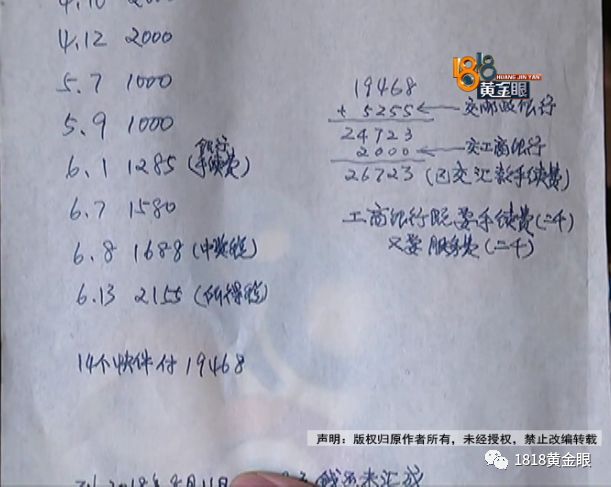 4.10 2000
4.12 2000
5.7 1000
5.9 1000
银行
6.1 1285 (手续费)
6.7 1580
6.8 1688 (中奖税)
6.13 2155 (所得税)
14个快件付19468
19468
+ 5255 ← 交邮政银行
24723
2000 ← 交工商银行
26723 (已交汇款手续费)
工商银行既要手续费(二千)
又要服务费(二千)
1818
HUANG JIN YAN
黄金眼
声明：版权归原作者所有，未经授权，禁止改编转载
2018年8月11日
钱还未汇放
1818黄金眼